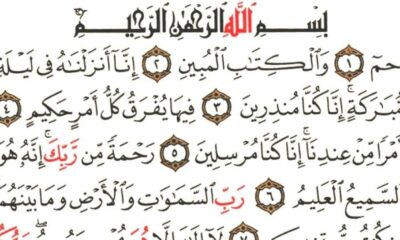 بِسْمِ ٱللَّهِ ٱلرَّحْمَٰنِ ٱلرَّحِيمِ
حمٓ ١ وَٱلْكِتَٰبِ ٱلْمُبِينِ ٢ إِنَّآ أَنزَلْنَٰهُ فِى لَيْلَةٍ
مُّبَٰرَكَةٍ إِنَّا كُنَّا مُنذِرِينَ ٣ فِيهَا يُفْرَقُ كُلُّ أَمْرٍ حَكِيمٍ ٤
أَمْرًا مِّنْ عِندِنَآ إِنَّا كُنَّا مُرْسِلِينَ ٥ رَحْمَةً مِّن رَّبِّكَ إِنَّهُۥ هُوَ
ٱلسَّمِيعُ ٱلْعَلِيمُ ٦ رَبِّ ٱلسَّمَٰوَٰتِ وَٱلْأَرْضِ وَمَا بَيْنَهُمَا